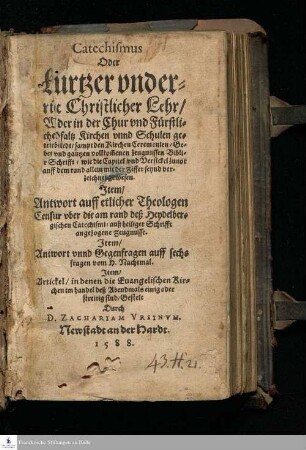 Catechismus
Oder
kurtzer vnder-
richt Christlicher Lehr/
Wie der in der Chur vnd Fürstli-
che Pfaltz Kirchen vnnd Schulen ge-
trieben wirdt: sampt den Kirchen Ceremonien/ Ge-
bet vnd gantzen vollkommenen zeugnussen Bibli-
scher Schrifft/ wie die Capitel vnd Versickel sampt
auff dem rand allein mit der Ziffer seynd ver-
zeichnet gewesen.
Item/
Antwort auff etlicher Theologen
Censur vber die am rand deß Heydelber-
gischen Catechismi/ auß heiliger Schrifft
angezogene Zeugnusse.
Item/
Antwort vnnd Gegenfragen auff sechs
fragen vom H. Nachtmal.
Item/
Artickel/ in denen die Euangelischen Kir-
chen im handel deß Abendmals einig oder
streitig sind/ Gestelt
Durch
D. ZACHARIAM VRSINVM.
Newstadt an der Hardt.
1588.
43. H. 2
Franckesche Stiftungen zu Halle